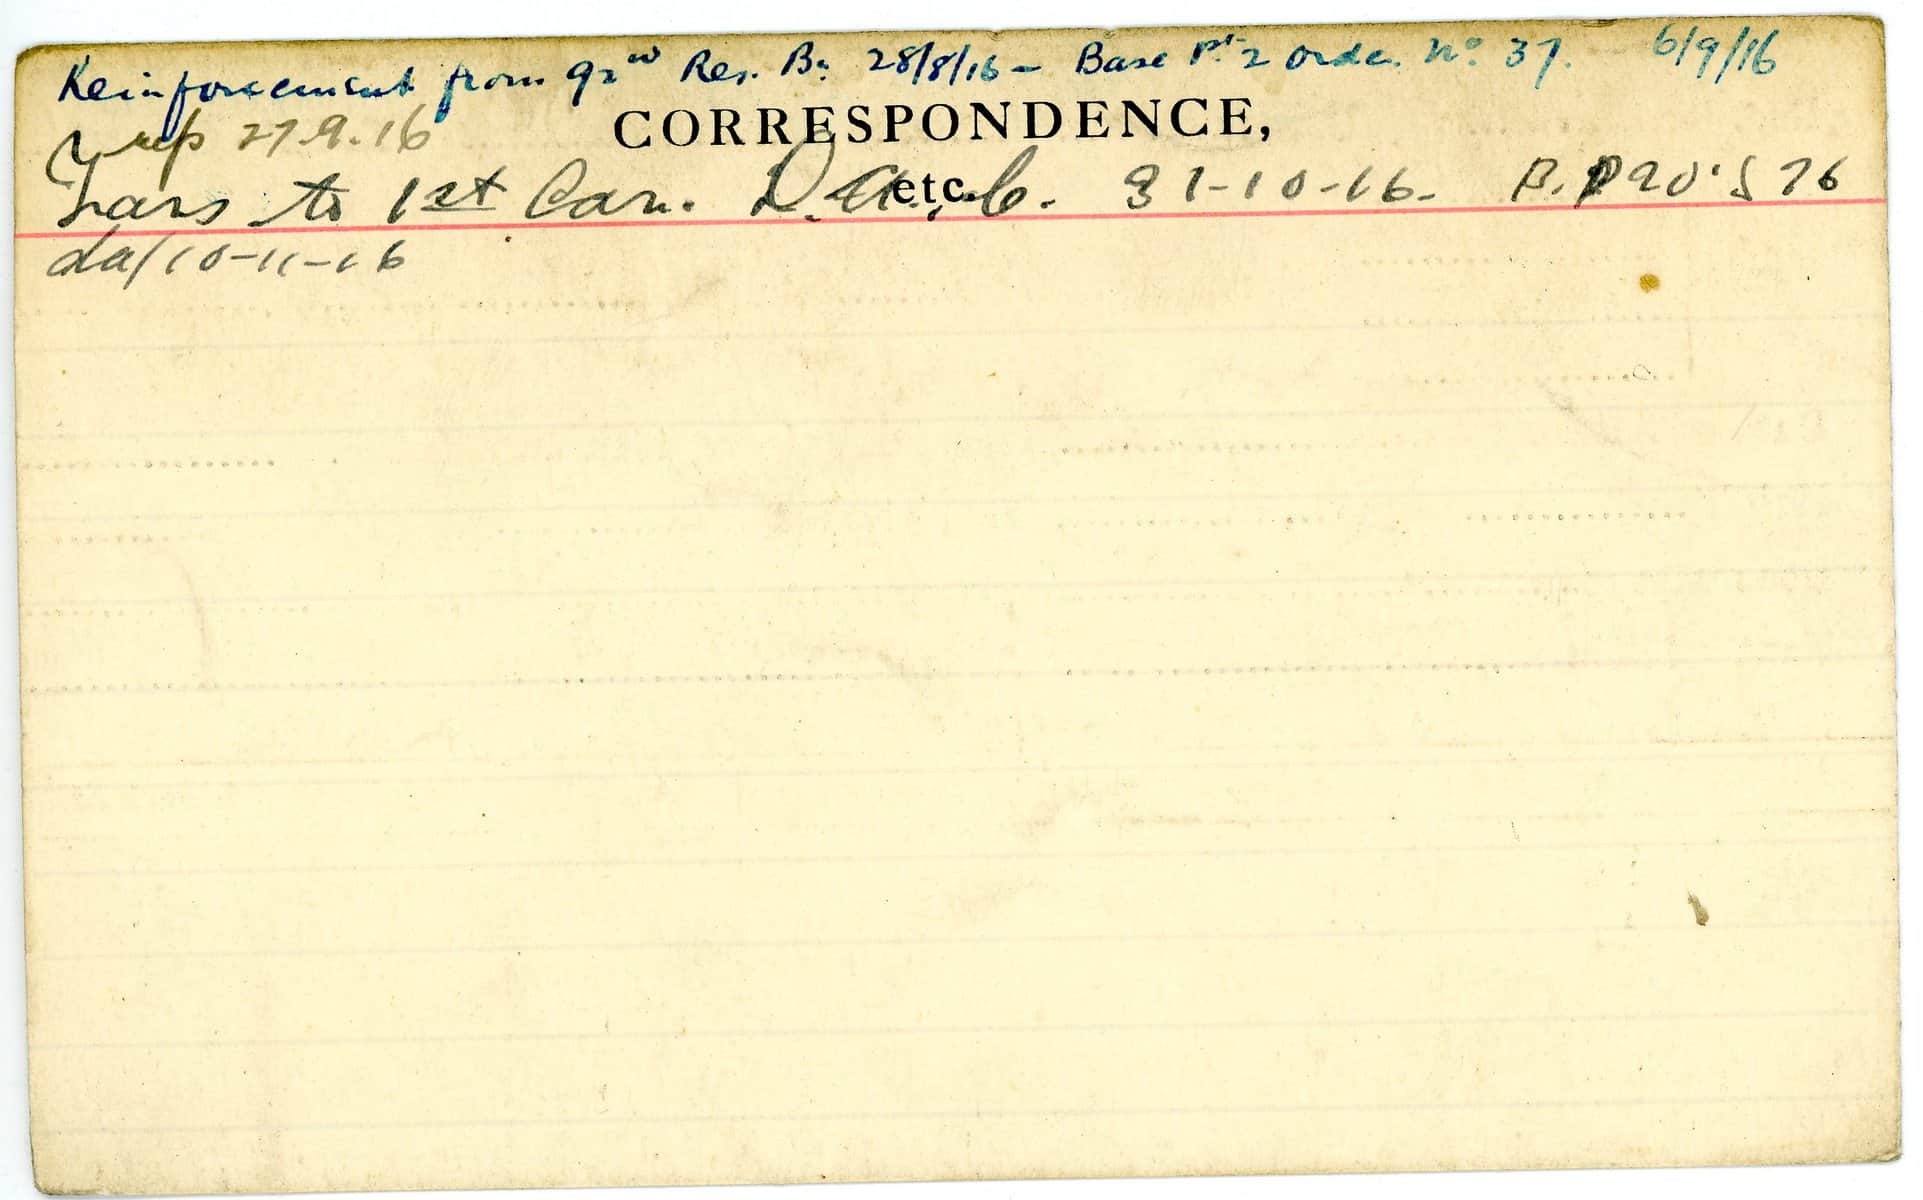 Reinforcement from 92nd Res. Bn 28/8/16 – Base pt 2 Order No 37. 6/9/16
CORRESPONDENCE,
27.9.16
Trans to 1st Can. D.A.C. 31-10-16- B.P20'S 76
etc.
da/10-11-16